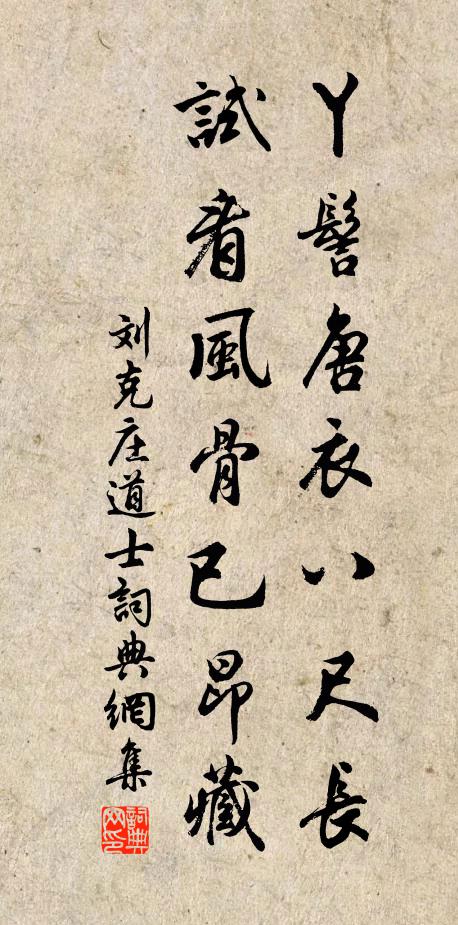 丫髻唐衣八尺長
試看風骨已昂藏
刘克庄道士詞典網集
詞典网印